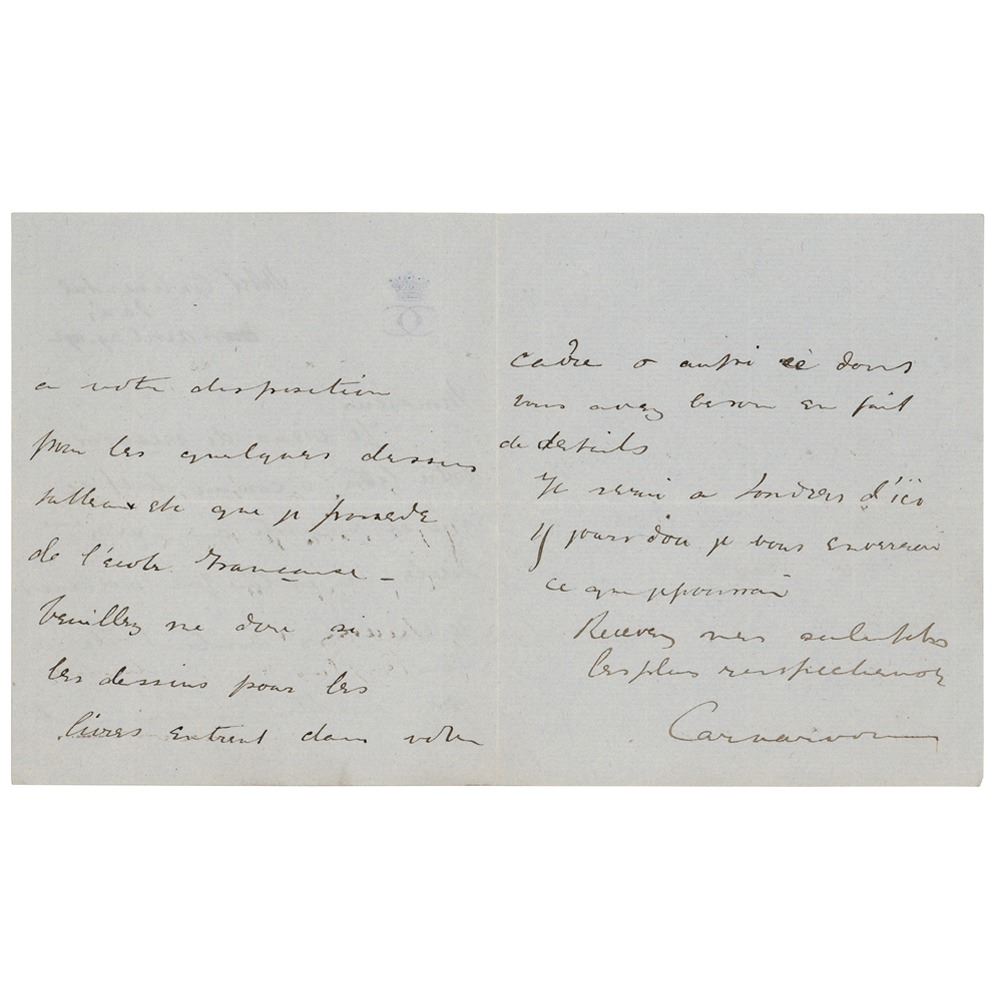 a votre disposition
pour les quelques dessins
tableaux etc que je possede
de l'école Francaise –
Veuillez me dire si
les dessins pour les
livres entrent dans votre
cadre & aussi ce dont
vous avez besoin en fait
de details
Je serai a Londres d'ici
jours dou je vous enverrai
ce que je pourrai
Recevez mes salutations
les plus respectueuses
Carnarvon